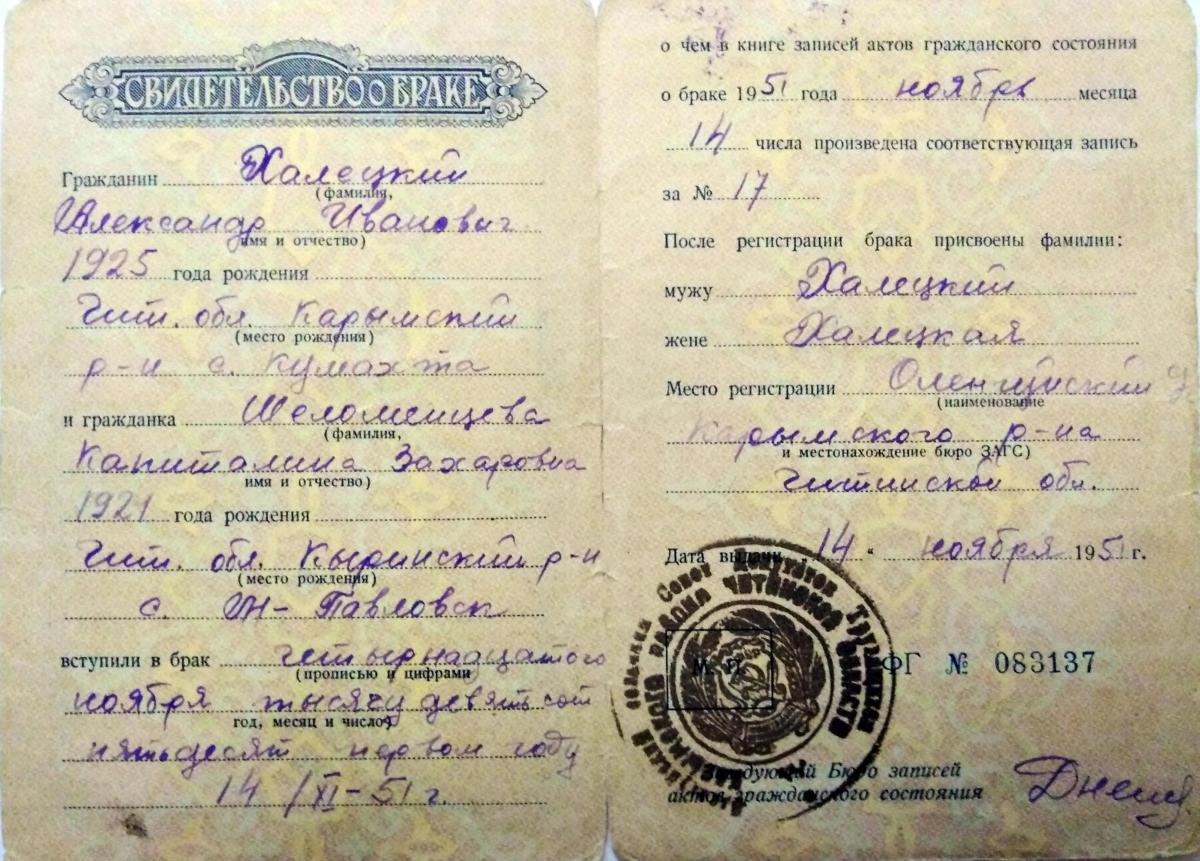 СВИДЕТЕЛЬСТВО О БРАКЕ
Гражданин Халецкий
(фамилия,
Александр Иванович
имя и отчество)
1925 года рождения
Чит. обл. Карымский
(место рождения)
р-н с. Кумахта
и гражданка Шеломенцева
(фамилия,
Капиталина Захаровна
имя и отчество)
1921 года рождения
Чит. обл. Кыринский р-н
(место рождения)
с. Павловск
вступили в брак четырнадцатого
(прописью и цифрами
ноября тысячу девятьсот
год, месяц и число)
пятьдесят первом году
14/XI-51 г.
о чем в книге записей актов гражданского состояния
о браке 1951 года ноябрь месяца
14 числа произведена соответствующая запись
за № 17
После регистрации брака присвоены фамилии:
мужу Халецкий
жене Халецкая
Место регистрации Оленгуйский
(наименование
Карымского р-на
и местонахождение бюро ЗАГС)
Читинской обл.
Дата выдачи „14“ ноября 1951 г.
Совет Депутатов Трудящихся
района Читинской области
М. П.
ФГ № 083137
Заведующий Бюро записей
актов гражданского состояния